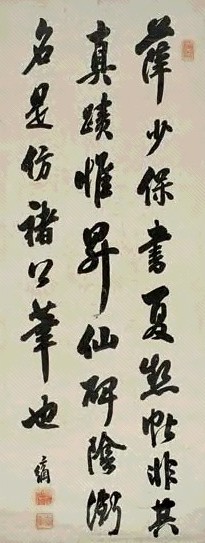 薛少保書夏熱帖非其
真蹟惟昇仙碑陰銜
名是仿褚公筆也